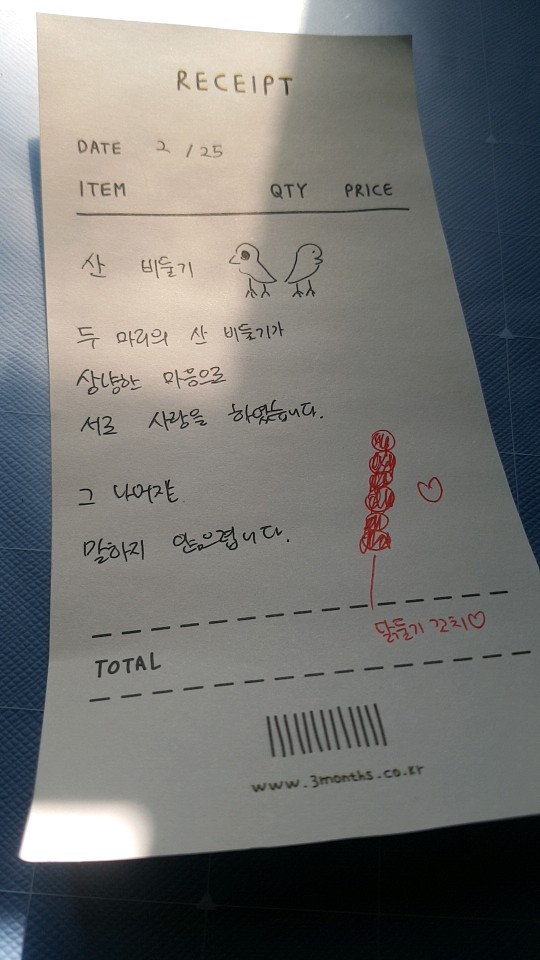 RECEIPT
DATE 2 / 25
ITEM QTY PRICE
산 비둘기
두 마리의 산 비둘기가
상냥한 마음으로
서로 사랑을 하였습니다.
그 나머지는
말하지 않으렵니다.
닭둘기 꼬치♡
TOTAL
www.3months.co.kr